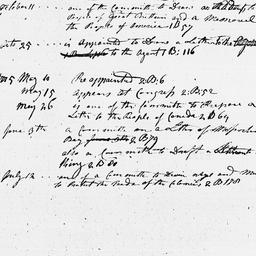 October 11 .. one of the Committee to Draw an Address to
People of Great Britain and a Memorial
the People of America 1 B 57
Octo 25 ... is appointed to Draw a Letter to the
to the agent 1 B: 116
May 10 Re appointed 2 B: 6
May 15 appears at Congress 2 B: 52
May 26 is one of the Committee to Prepare a
Letter to the People of Canada 2 B 64
June 3th a Committee on a Letter of Massachu
Bay 2 B 79
also a Committee to Draft a
King 2 B 80
July 12 ... one of a Committee to Devise ways and
to Protect the Trade of the Colonies 2 B 178